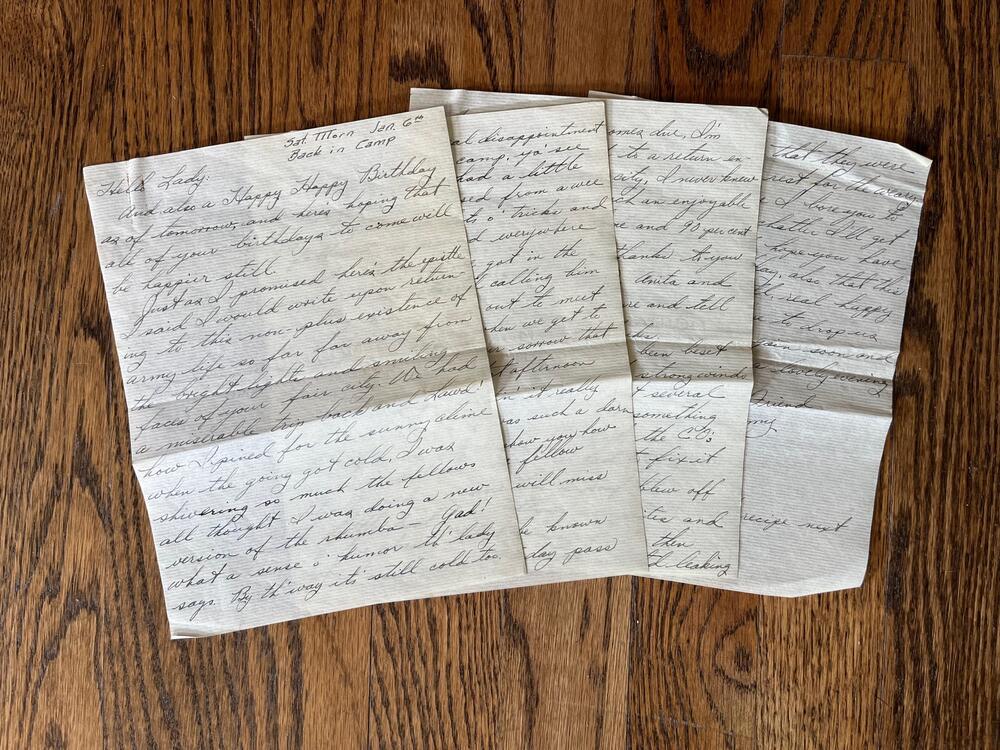 Sat. Morn Jan. 6th
Back in Camp
Hello Lady:
And also a Happy Happy Birthday
as of tomorrow, and here's hoping that
all of your birthdays to come will
be happier still.
Just as I promised here's the epistle
I said I would write upon return
ing to this non-plus existence of
army life so far far away from
the bright lights and smiling
faces of your fair city. We had
a miserable trip back and Lawd!
how I pined for the sunny clime
when the going got cold, I was
shivering so much the fellows
all thought I was doing a new
version of the rhumba— Gad!
what a sense o' humor th' lady
says. By th' way it's still cold too.
al disappointment
camp, yo' see
had a little
sed from a wee
ts o' tricks and
d everywhere
got in the
calling him
out to meet
hen we get to
sorrow that
afternoon
n' it really
as such a darn
show you how
fellow
will miss
be known
day pass
omes due, I'm
to a return en-
city, I never knew
ch an enjoyable
e and 90 per cent
thanks to your
Anita and
re and tell
been beset
strong winds
t several
something
the C.O.s
t fix it
blew off
ites and
then
leaking
that they were
rest for the weary
I love you to
I'll get
hope you have
day, also that this
real happy
to drop us
again soon and
a lovely evening
Friend
recipe next